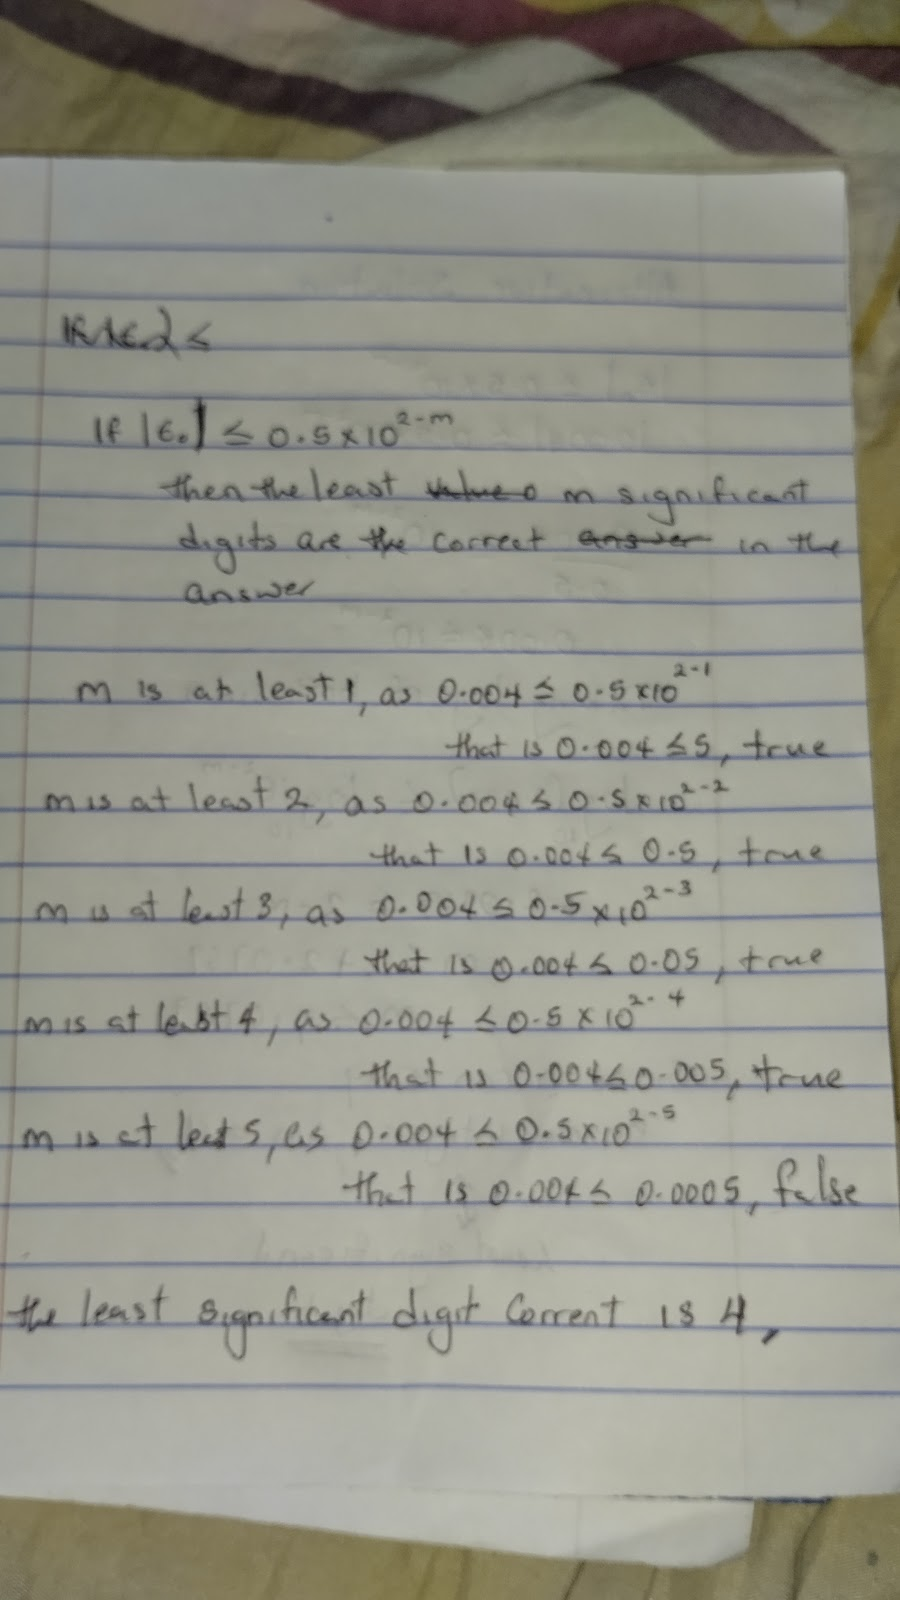 If |є.| ≤ 0.5×10^2-m
then the least m significant
digits are the correct in the
answer
m is at least 1, as 0.004 ≤ 0.5×10^2-1
that is 0.004 ≤ 5, true
m is at least 2, as 0.004 ≤ 0.5×10^2-2
that is 0.004 ≤ 0.5, true
m is at least 3, as 0.004 ≤ 0.5×10^2-3
that is 0.004 ≤ 0.05, true
m is at least 4, as 0.004 ≤ 0.5×10^2-4
that is 0.004 ≤ 0.005, true
m is at least 5, as 0.004 ≤ 0.5×10^2-5
that is 0.004 ≤ 0.0005, false
the least significant digit Corrent is 4,